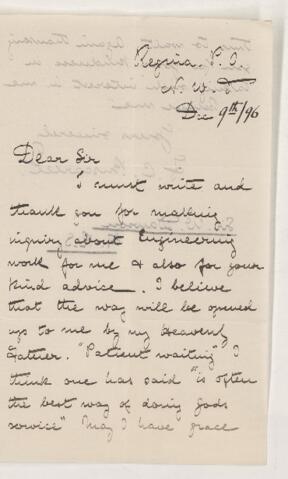 Regina P.O.
N. W. T
Dec 9th/96
Dear Sir
I must write and
thank you for making
inquiry about Engineering
work for me & also for your
kind advice. I believe
that the way will be opened
up to me by my Heavenly
Father. "Patient waiting" I
think one has said "is often
the best way of doing gods
service" May I have grace